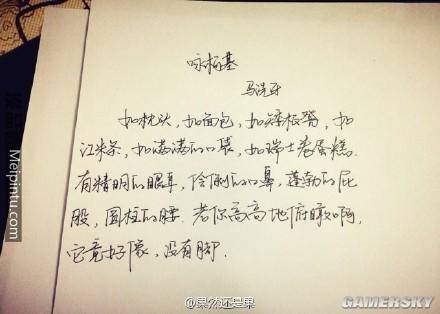 咏柯基
马
如枕头,如面包,如矮板凳,如
江米条,如满满的口袋,如瑞士卷蛋糕.
有精明的眼耳,伶俐的口鼻,蓬勃的屁
股,圆柱的腰.若你高高地俯瞰啊,
它竟好像,没有脚.
Meipintu.com
GAMERSKY